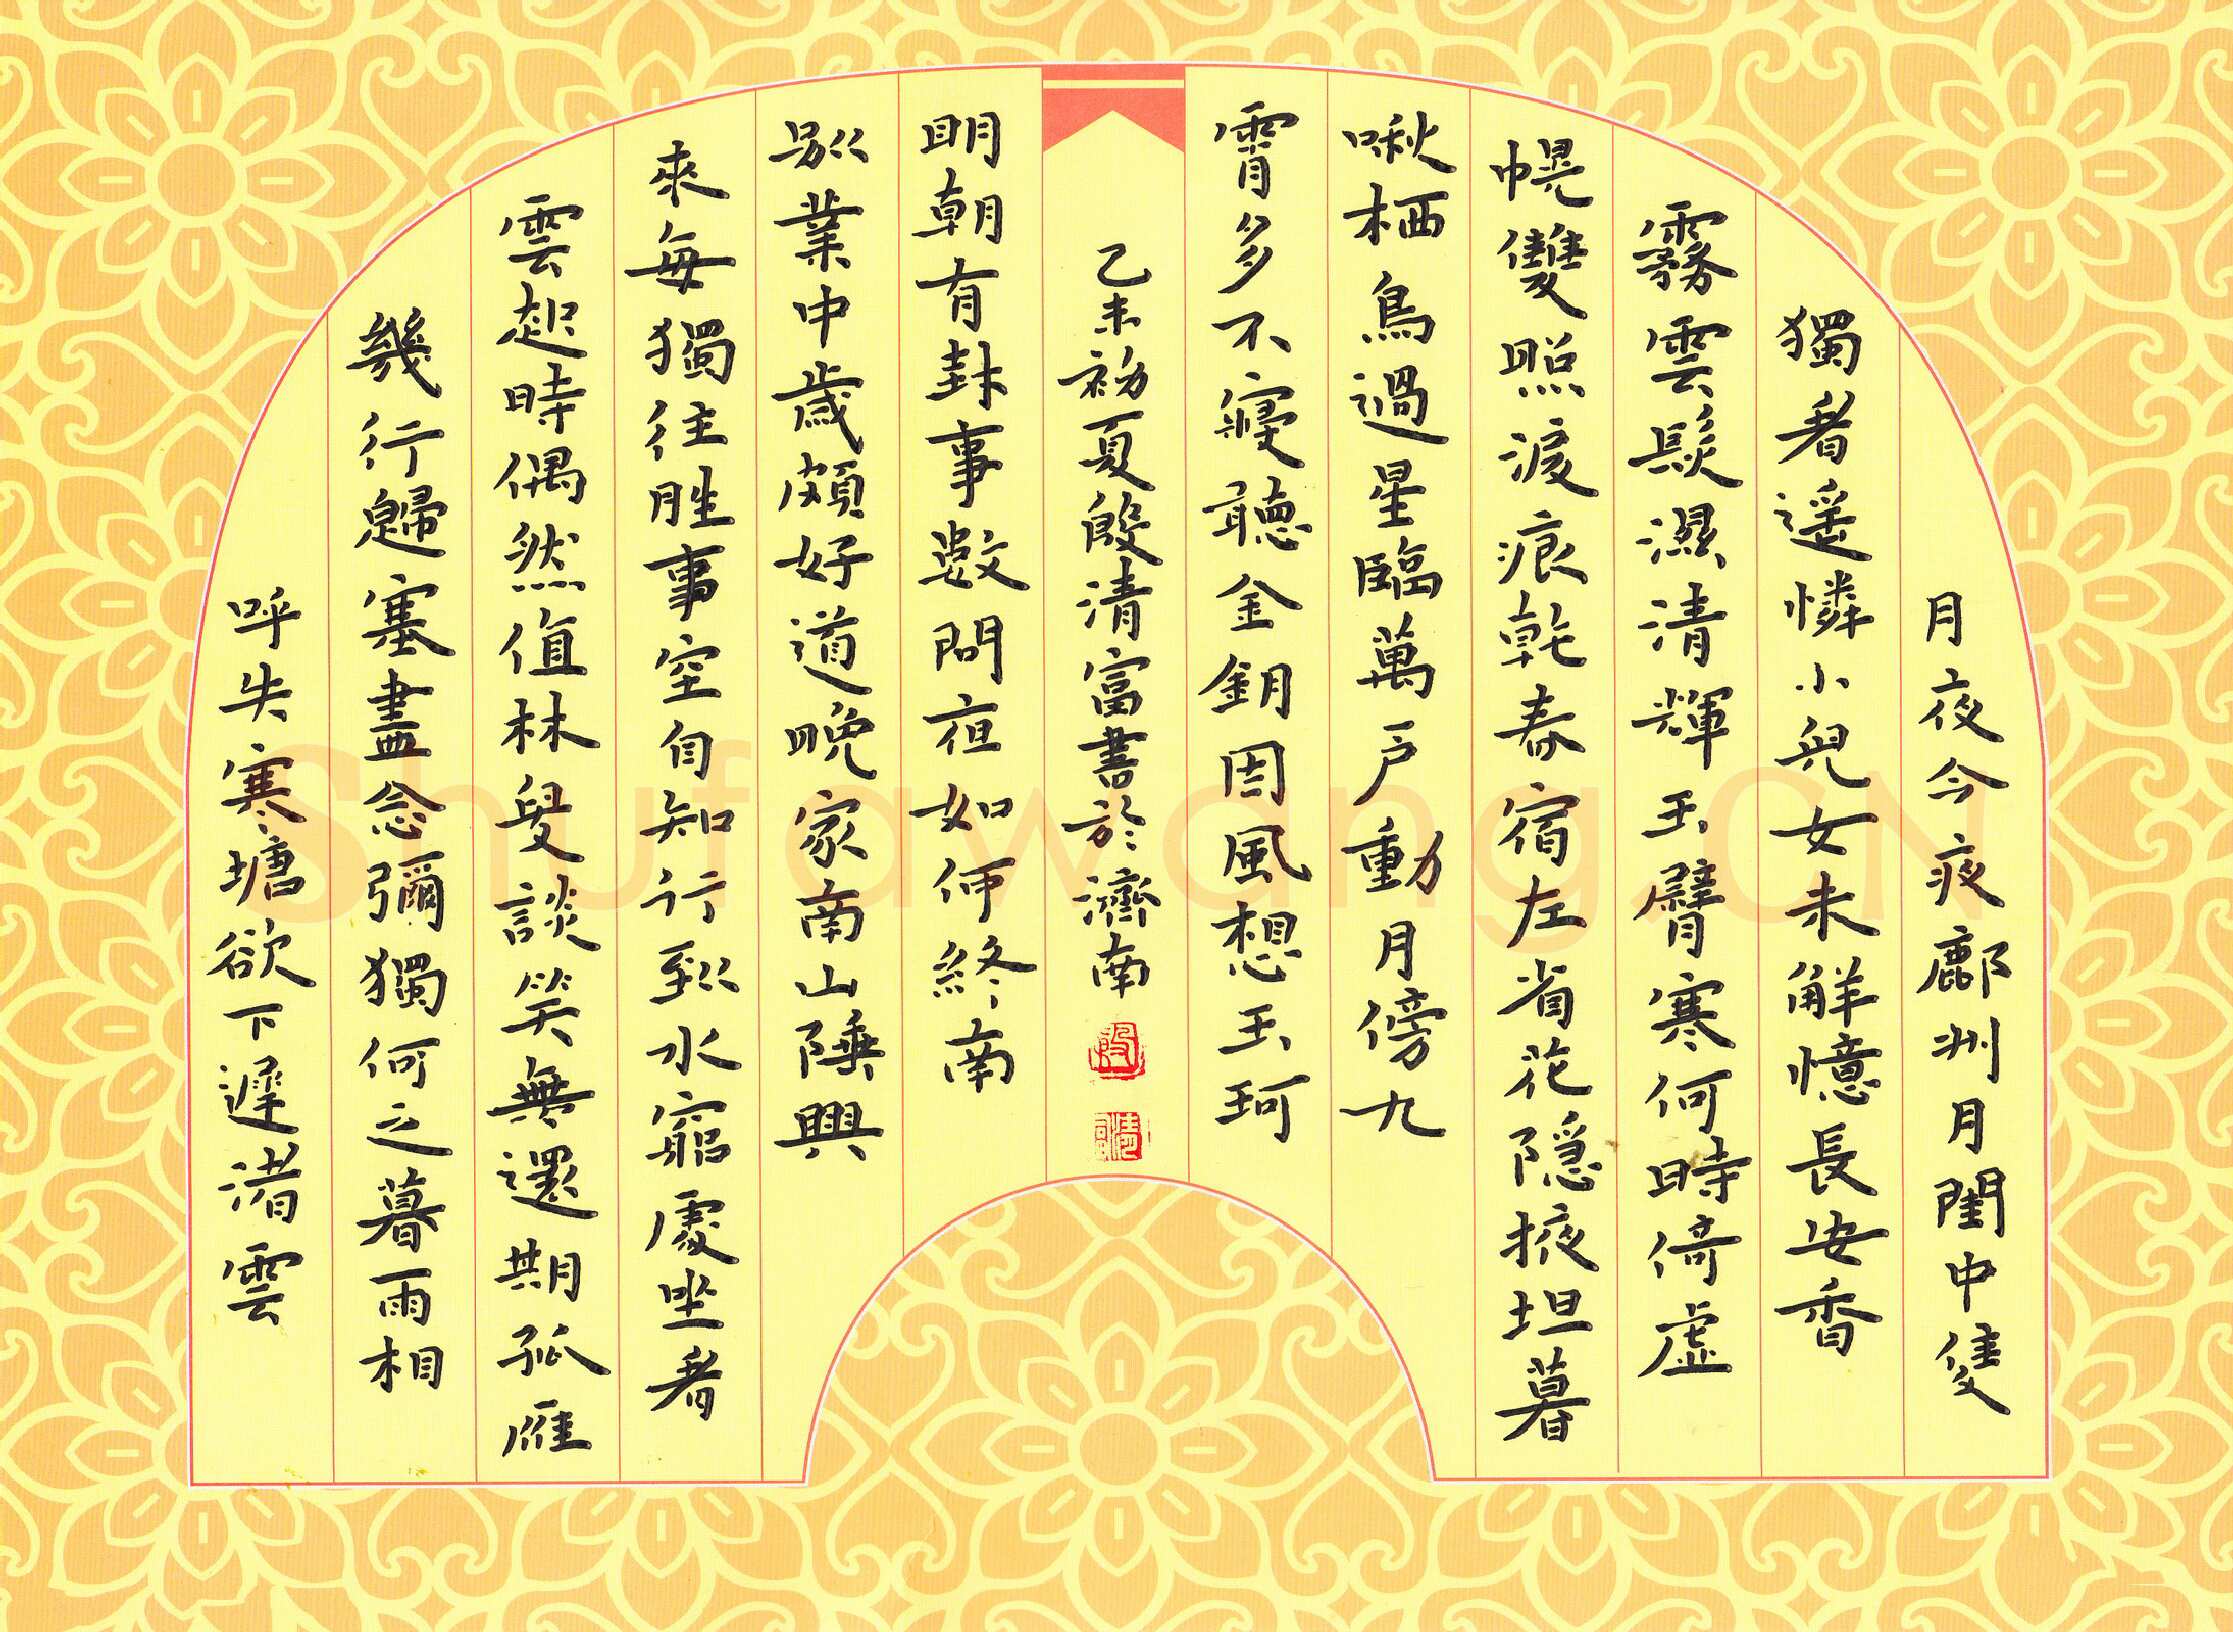 月夜今夜鄜州月閨中隻
獨看遥憐小兒女未解憶長安香
霧雲鬟濕清輝玉臂寒何時倚虛
幌雙照淚痕乾春宿左省花隱掖坦暮
啾栖鳥過星臨萬户動月傍九
霄多不寢聽金鑰因風想玉珂
乙未初夏殷清富書於濟南
明朝有封事數問夜如何終南
别業中歲頗好道晚家南山陲興
來每獨往勝事空自知行到水窮處坐看
雲起時偶然值林叟談笑無還期孤雁
幾行歸塞盡念彌獨何之暮雨相
呼失寒塘欲下遲渚雲
Shufawang.CN